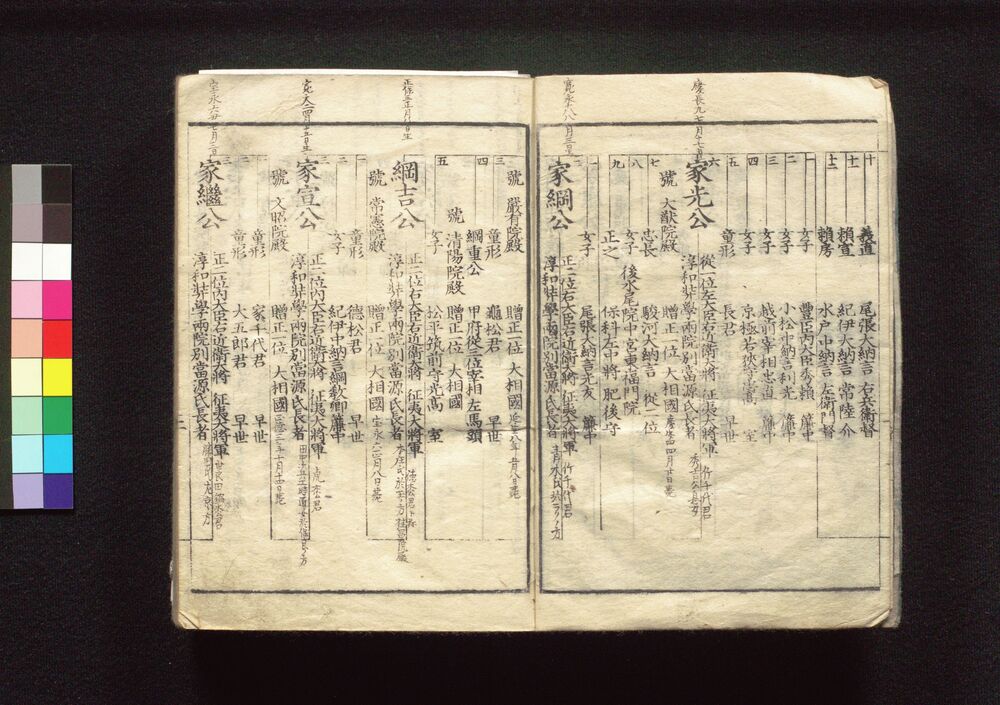 十 義直 尾張大納言 右兵衛督
十一 頼宣 紀伊大納言 常陸介
十二 頼房 水戸中納言 左衛門督
一 女子 豊臣内大臣秀頼 簾中
二 女子 小松中納言利光 簾中
三 女子 越前宰相忠直 簾中
四 女子 京極若狭守忠高 室
五 童形 長君 早世
慶長九七月十七日
六 家光公 従一位左大臣右近衛大将 征夷大将軍 竹千代君
淳和奨學兩院別當源氏長者
號 大猷院殿 贈正一位 大相國 慶安四四月廿日薨
七 忠長 駿河大納言 従一位
八 女子 後水尾院中宮東福門院
九 正之 保科左中將 肥後守
一 女子 尾張大納言光友 簾中
寛永八八月三日
二 家綱公 正二位右大臣右近衛大将 征夷大将軍 竹千代君
淳和奨學兩院別當源氏長者
號 嚴有院殿 贈正一位 大相國 延宝八年五月八日薨
三 童形 龜松君 早世
四 綱重公 甲府従三位宰相左馬頭
號 清陽院殿 贈正一位 大相國
五 女子 松平筑前守光高 室
正保三正月八日生
綱吉公 正二位右大臣右近衛大将 征夷大将軍 徳松君
淳和奨學兩院別當源氏長者
號 常憲院殿 贈正一位 大相國 宝永六正月八日薨
一 童形 德松君 早世
二 女子 紀伊中納言綱教卿簾中
家宣公 正二位内大臣右近衛大将 征夷大将軍
淳和奨學兩院別當源氏長者
號 文昭院殿 贈正一位 大相國 正徳二年十月十四日薨
一 童形 家千代君 早世
二 童形 大五郎君 早世
宝永六丑七月三日
三 家繼公 正二位内大臣右近衛大将 征夷大将軍
淳和奨學兩院別當源氏長者